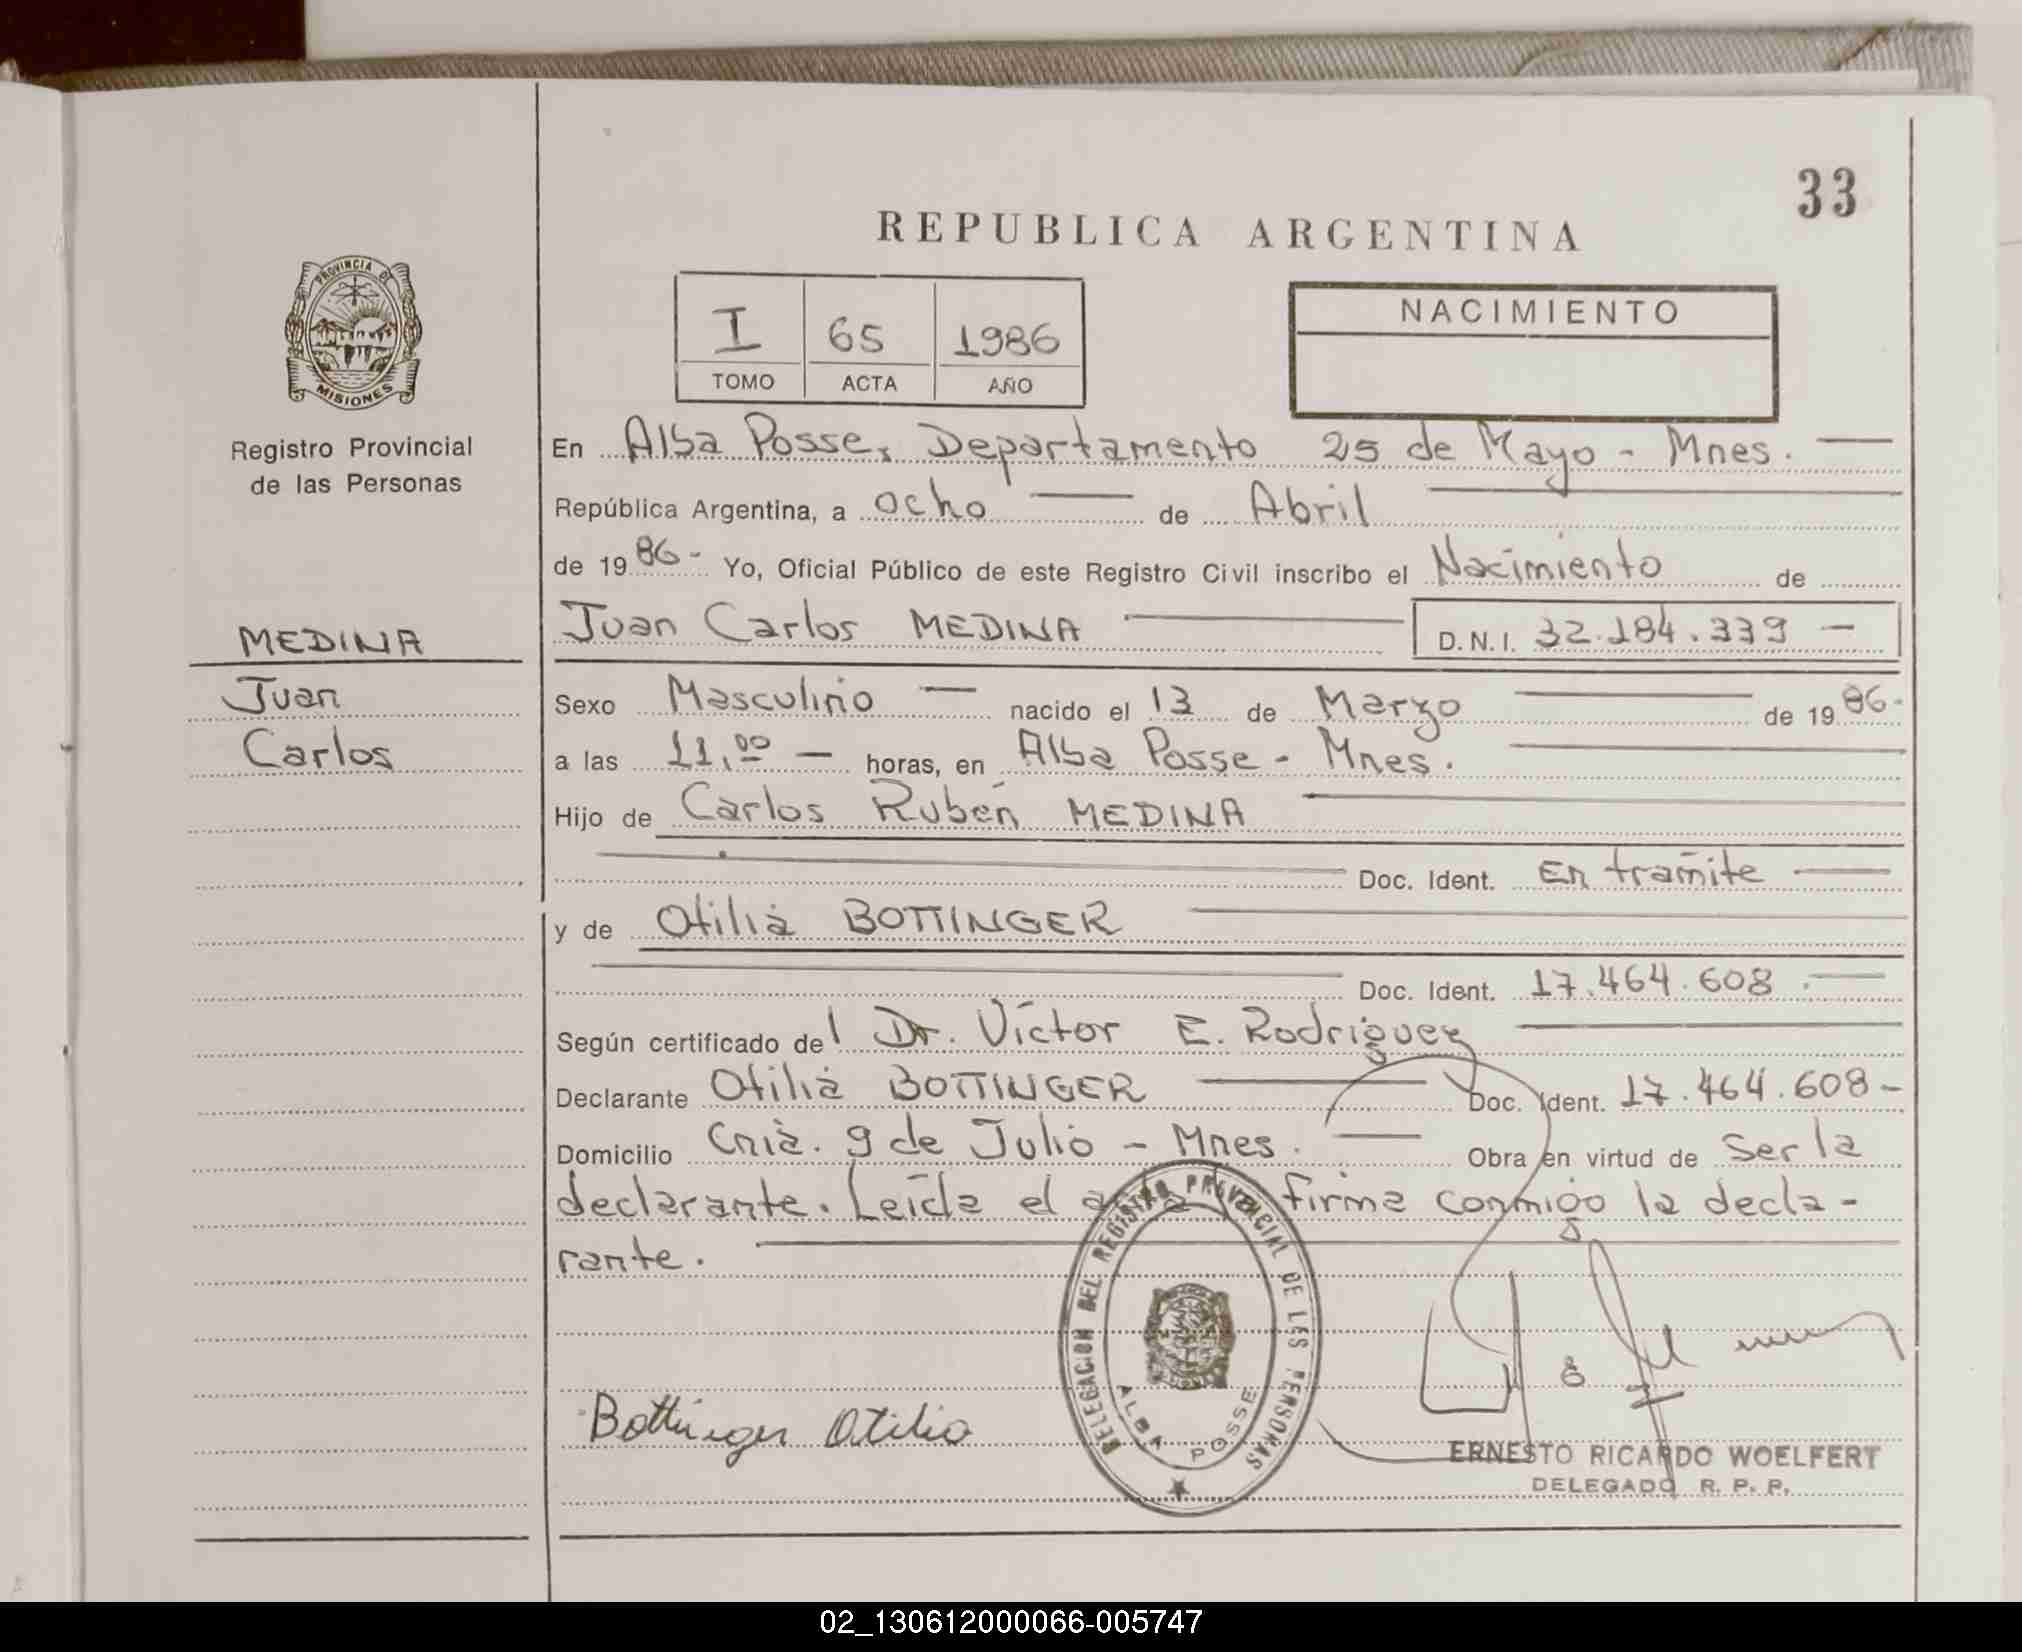 33
REPUBLICA ARGENTINA
PROVINCIA DE
MISIONES
Registro Provincial
de las Personas
I 65 1986
TOMO ACTA AÑO
NACIMIENTO
En Alba Posse, Departamento 25 de Mayo - Mnes.
República Argentina, a ocho de Abril
de 19 86- Yo, Oficial Público de este Registro Civil inscribo el Nacimiento de
Juan Carlos MEDINA D.N.I. 32.184.339 -
MEDINA
Juan
Carlos
Sexo Masculino nacido el 13 de Marzo de 19 86-
a las 11,00 - horas, en Alba Posse - Mnes.
Hijo de Carlos Rubén MEDINA
Doc. Ident. En trámite
y de Otilia BOTTINGER
Doc. Ident. 17.464.608.-
Según certificado del Dr. Víctor E. Rodriguez
Declarante Otilia BOTTINGER Doc. Ident. 17.464.608-
Domicilio Cnia. 9 de Julio - Mnes. Obra en virtud de Ser la
declarante. Leída el acta firma conmigo la decla-
rante.
DELEGACION DEL REGISTRO PROVINCIAL DE LAS PERSONAS
ALBA POSSE
Bottinger Otilia
ERNESTO RICARDO WOELFERT
DELEGADO R. P. P.
02_130612000066-005747